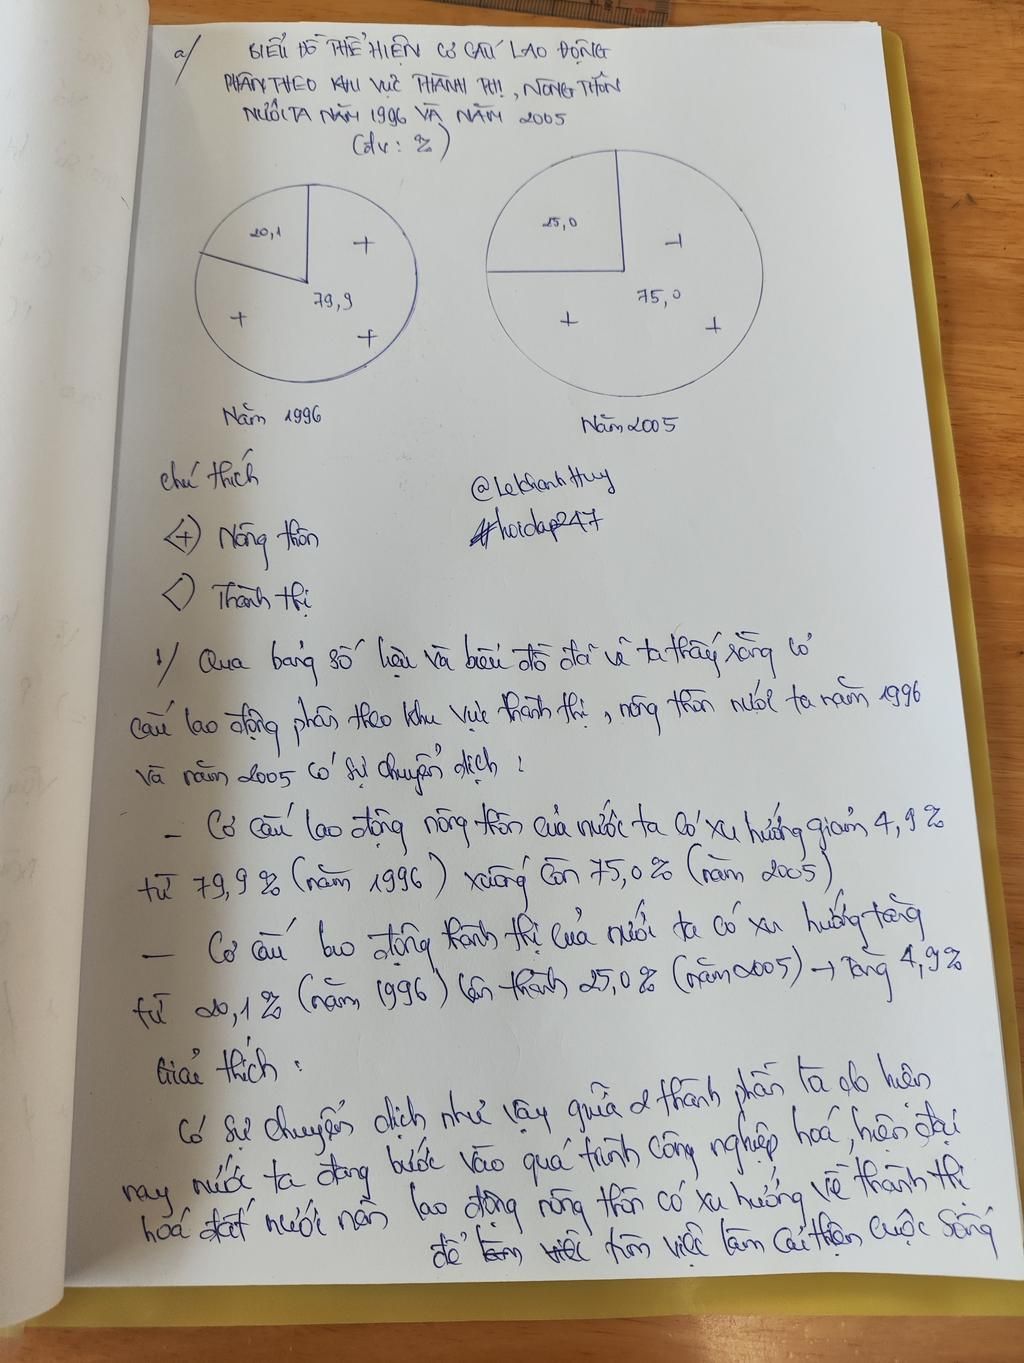 a/ BIỂU ĐỒ THỂ HIỆN CƠ CẤU LAO ĐỘNG
PHÂN THEO KHU VỰC THÀNH THỊ, NÔNG THÔN
NƯỚC TA NĂM 1996 VÀ NĂM 2005
(đv: %)
20,1
79,9
25,0
75,0
Năm 1996
Năm 2005
chú thích
@LeKhanhHuy
#hoidap247
(+) Nông thôn
Thành thị
Qua bảng số liệu và biểu đồ đã vẽ ta thấy rằng cơ
cấu lao động phân theo khu vực thành thị, nông thôn nước ta năm 1996
và năm 2005 có sự chuyển dịch:
- Cơ cấu lao động nông thôn của nước ta có xu hướng giảm 4,9%
từ 79,9% (năm 1996) xuống còn 75,0% (năm 2005)
- Cơ cấu lao động thành thị của nước ta có xu hướng tăng
từ 20,1% (năm 1996) lên thành 25,0% (năm 2005) → Tăng 4,9%
Giải thích:
Có sự chuyển dịch như vậy giữa 2 thành phần là do hiện
nay nước ta đang bước vào quá trình công nghiệp hoá, hiện đại
hoá đất nước nên lao động nông thôn có xu hướng về thành thị
để tìm việc làm cải thiện cuộc sống